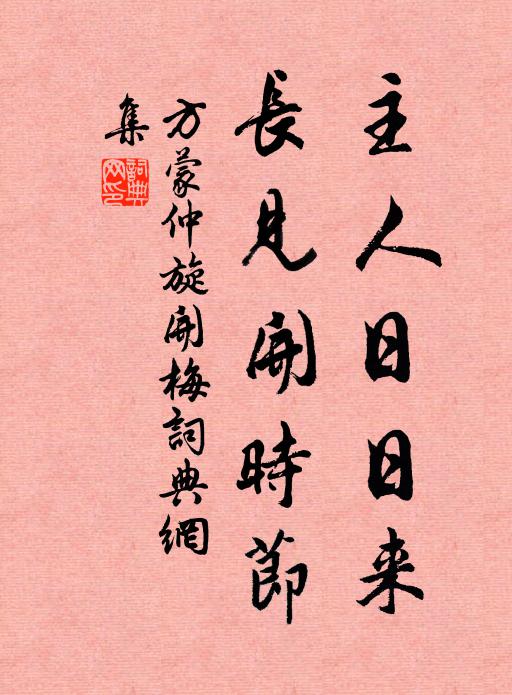 主人日日来
長見開時節
方蒙仲旋開梅詞典網
集
詞典
网印